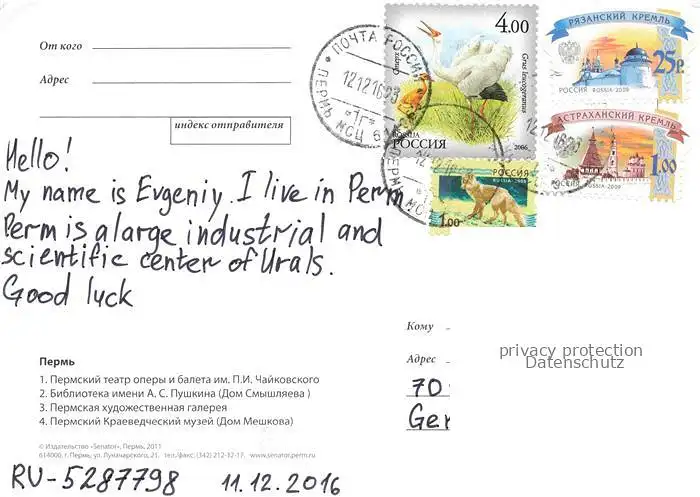 От кого
Адрес
индекс отправителя
Hello!
My name is Evgeniy. I live in Perm
Perm is a large industrial and
scientific center of Urals.
Good luck
ПОЧТА РОССИИ
ПЕРМЬ МСЦ 6
12121623
*1г*
4.00
Стерх
Grus leucogeranus
ROSSIJA
РОССИЯ
2006
РЯЗАНСКИЙ КРЕМЛЬ
25р.
РОССИЯ RUSSIA·2009
АСТРАХАНСКИЙ КРЕМЛЬ
1.00
РОССИЯ RUSSIA·2009
РОССИЯ
RUSSIA·2008
1.00
Кому
Адрес
privacy protection
Datenschutz
70
Ger
Пермь
1. Пермский театр оперы и балета им. П.И. Чайковского
2. Библиотека имени А. С. Пушкина (Дом Смышляева )
3. Пермская художественная галерея
4. Пермский Краеведческий музей (Дом Мешкова)
© Издательство «Senator», Пермь, 2011
614000, г. Пермь, ул. Луначарского, 21. тел./факс: (342) 212-32-17. www.senator.perm.ru
RU-5287798 11.12.2016